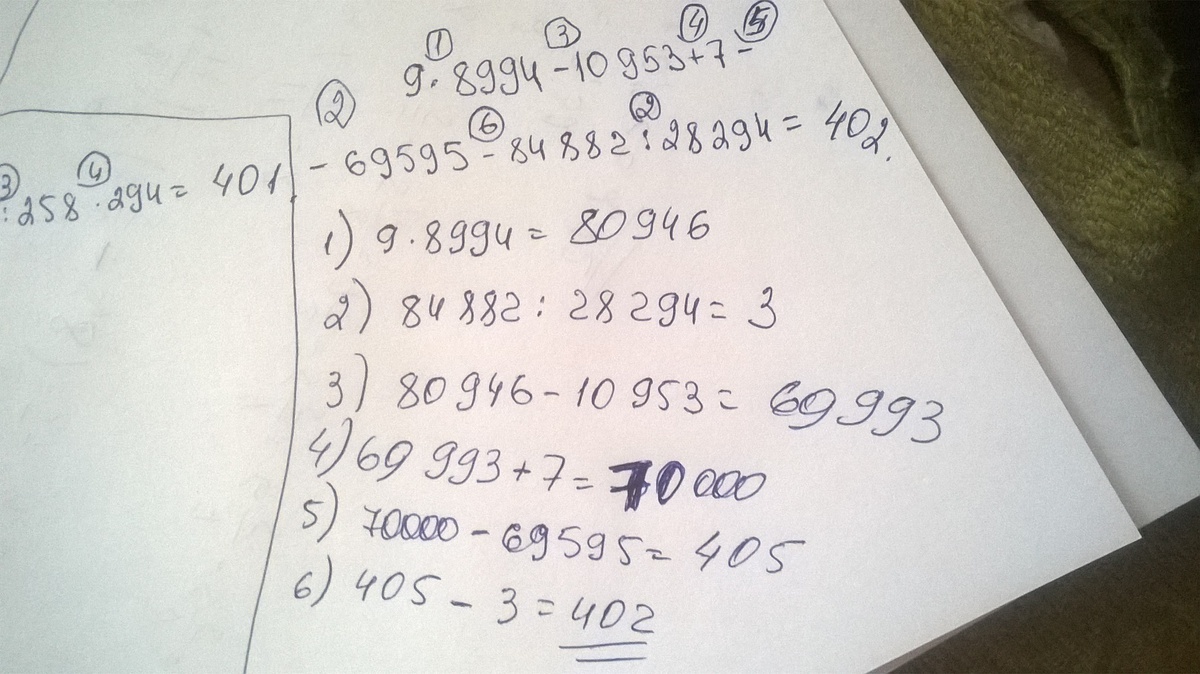 ① ③ ④ ⑤
9·8994-10953+7-
② ⑥ ②
-69595-84882:28294=402.
③ ④
:258·294=401
1) 9·8994=80946
2) 84882:28294=3
3) 80946-10953=69993
4) 69993+7=70000
5) 70000-69595=405
6) 405-3=402